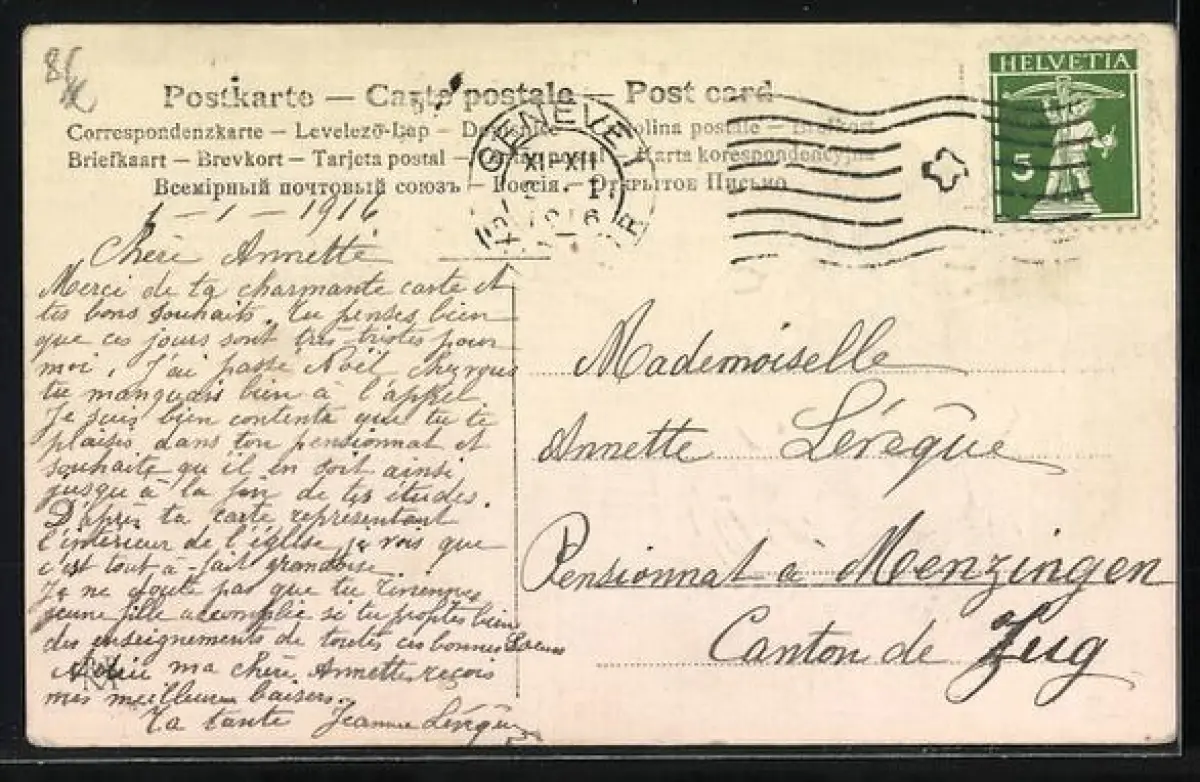 HELVETIA
5
Postkarte — Carte postale — Post card
Correspondenzkarte — Levelező-Lap —
Briefkaart — Brevkort — Tarjeta postal — Karta korespondencyjna
Всемірный почтовый союзъ — Россія. — Открытое Письмо
GENEVE
XI-XII
1-1-1916
Chère Annette
Merci de ta charmante carte et
tes bons souhaits. Tu penses bien
que ces jours sont très tristes pour
moi. J'ai passé Noël chez vous
tu manquais bien à l'appel
Je suis bien contente que tu te
plaises dans ton pensionnat et
souhaite qu'il en soit ainsi
jusqu'à la fin de tes études.
D'après ta carte représentant
l'intérieur de l'église je vois que
c'est tout-à-fait grandiose
Je ne doute pas que tu
jeune fille accomplie si tu profites bien
des enseignements de toutes ces bonnes Soeurs
Adieu ma chère Annette reçois
mes meilleurs baisers.
Ta tante Jeanne Lévêque
Mademoiselle
Annette Lévêque
Pensionnat à Menzingen
Canton de Zug